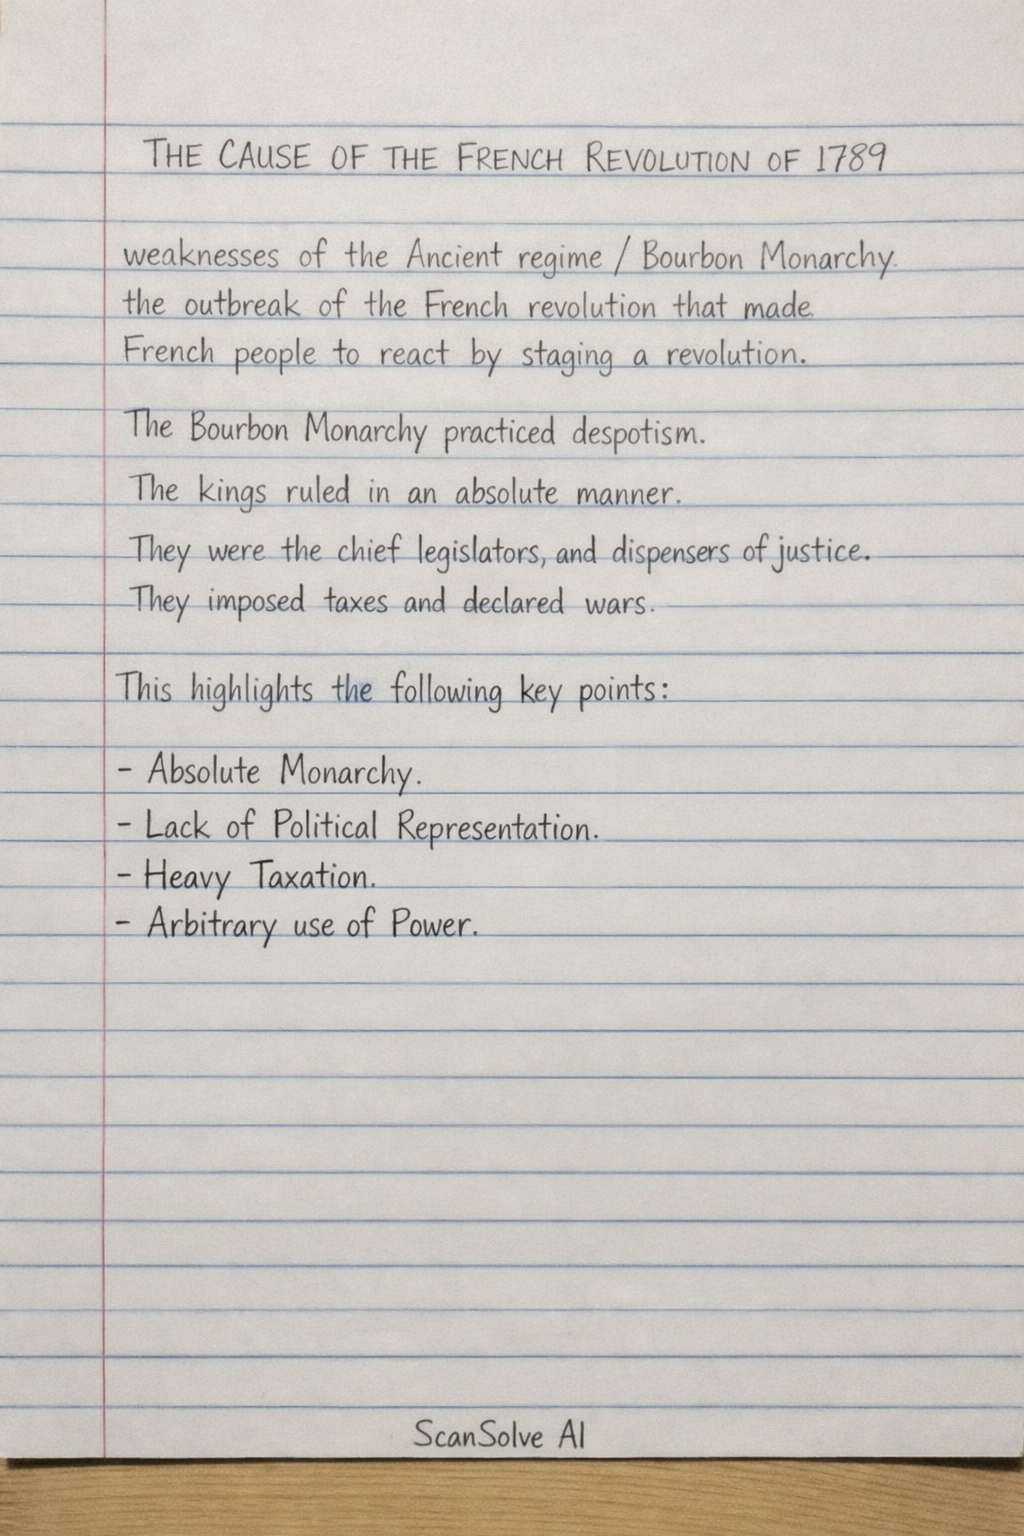 THE CAUSE OF THE FRENCH REVOLUTION OF 1789
weaknesses of the Ancient regime / Bourbon Monarchy.
the outbreak of the French revolution that made
French people to react by staging a revolution.
The Bourbon Monarchy practiced despotism.
The kings ruled in an absolute manner.
They were the chief legislators, and dispensers of justice.
They imposed taxes and declared wars.
This highlights the following key points:
- Absolute Monarchy.
- Lack of Political Representation.
- Heavy Taxation.
- Arbitrary use of Power.
ScanSolve AI